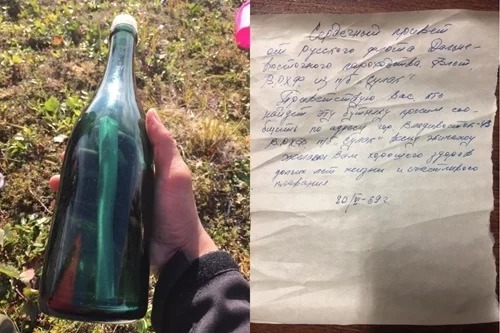 Сердечный привет
от русского флота Дальне-
восточного пароходства. Флот
ВРХФ из п/б "Сулак"
Приветствую Вас, кто
найдет эту бутылку просим соо-
бщить по адресу гор. Владивосток-43
ВРХФ п/б "Сулак" всему экипажу
Желаем Вам хорошего здоров
долгих лет жизни и счастливого
плавания
20/VI-69г.